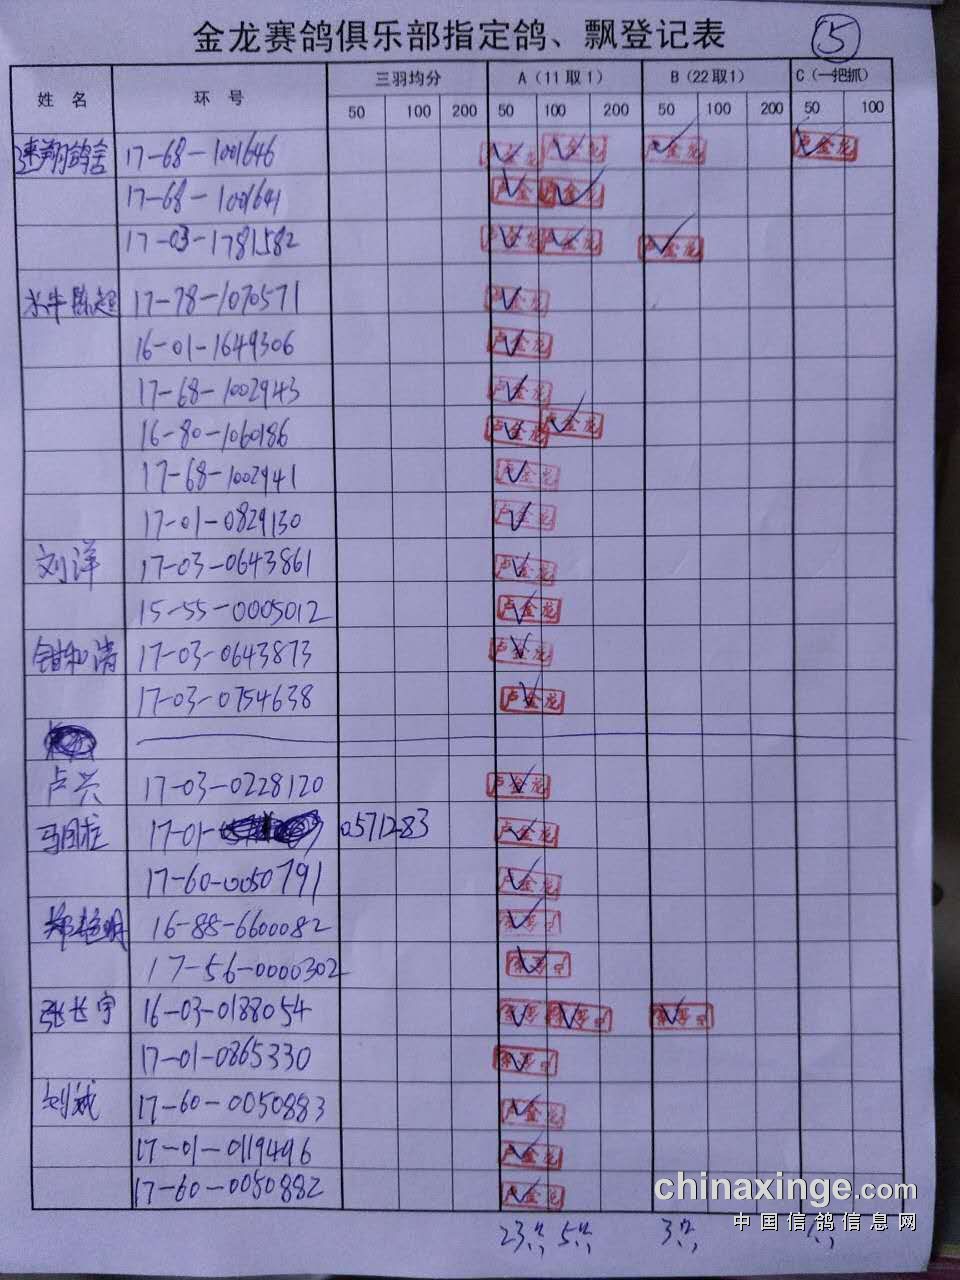 金龙赛鸽俱乐部指定鸽、飘登记表 5
姓 名 环 号 三羽均分 A（11取1） B（22取1） C（一把抓）
50 100 200 50 100 200 50 100 200 50 100
速翔鸽舍 17-68-1001646 卢金龙 卢金龙 卢金龙 卢金龙
17-68-1001641 卢金龙 卢金龙
17-03-1781582 卢金龙 卢金龙 卢金龙
水牛陈超 17-78-1070571 卢金龙
16-01-1649306 卢金龙
17-68-1002943 卢金龙
16-80-1060186 卢金龙 卢金龙
17-68-1002941 卢金龙
17-01-0829130 卢金龙
刘洋 17-03-0643861 卢金龙
15-55-0005012 卢金龙
17-03-0643873 卢金龙
17-03-0754638 卢金龙
卢兴 17-03-0228120 卢金龙
17-01- 0571283 卢金龙
17-60-0050791 卢金龙
16-88-6600082
17-56-0000302
张长宇 16-03-0188054
17-01-0865330
刘斌 17-60-0050883 卢金龙
17-01-0119496 卢金龙
17-60-0050882 卢金龙
23 5 3 1
chinaxinge.com
中国信鸽信息网